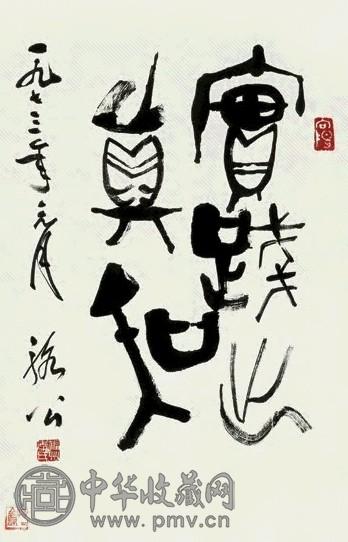 實踐出
真知
一九七三年元月
公
中华收藏网
www.pmv.cn